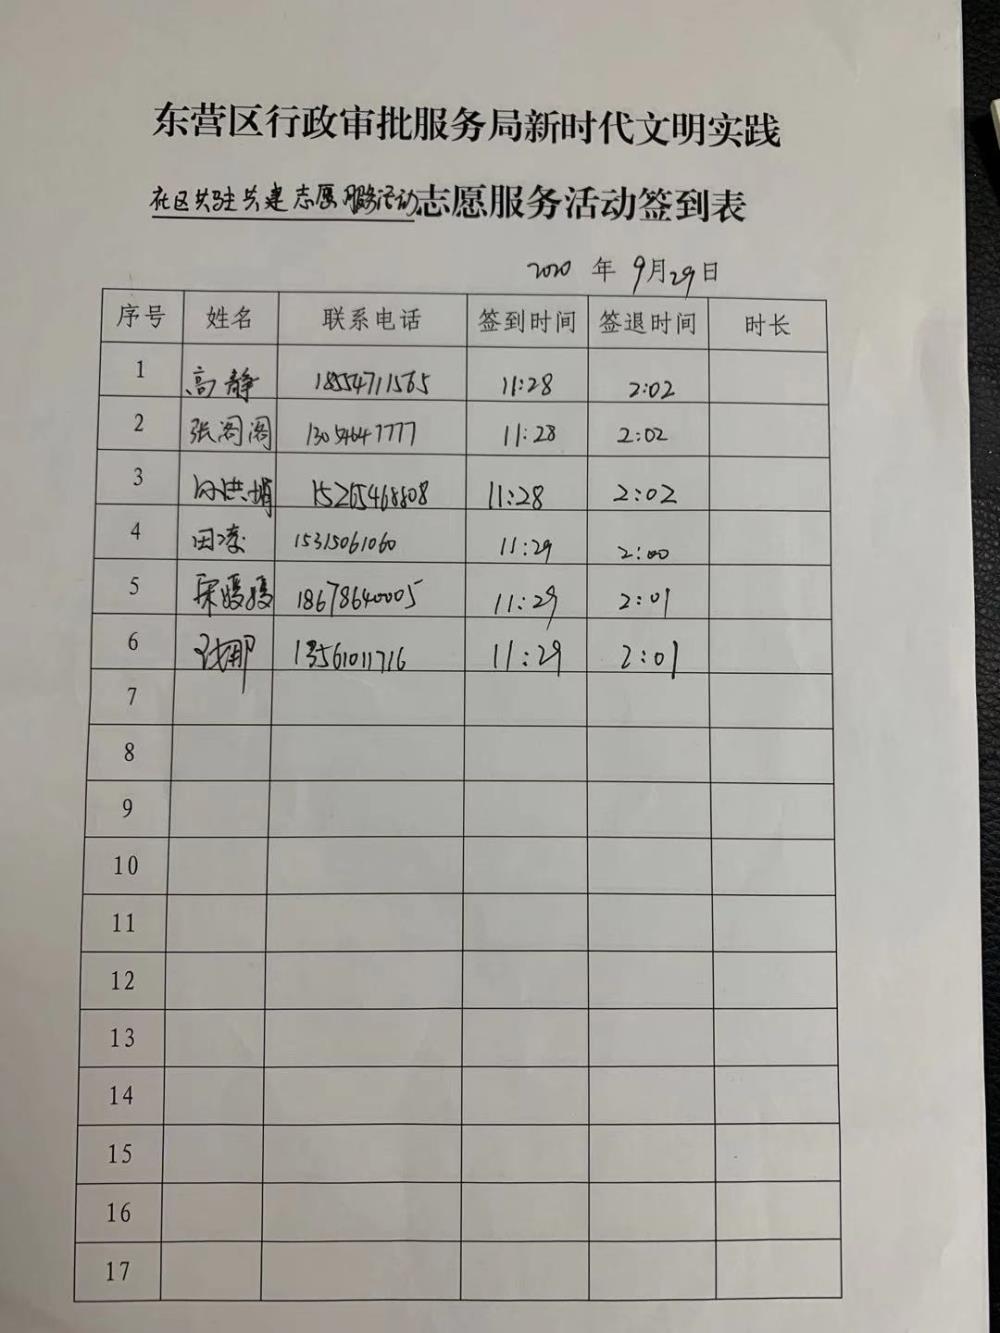 东营区行政审批服务局新时代文明实践
社区共驻共建志愿服务活动志愿服务活动签到表
2020 年 9月29日
序号 姓名 联系电话 签到时间 签退时间 时长
1 高静 18554711565 11:28 2:02
2 张阁阁 13054647777 11:28 2:02
3 15265468808 11:28 2:02
4 田凌 15315061060 11:29 2:00
5 宋媛媛 18678640005 11:29 2:01
6 13561011716 11:29 2:01
7
8
9
10
11
12
13
14
15
16
17